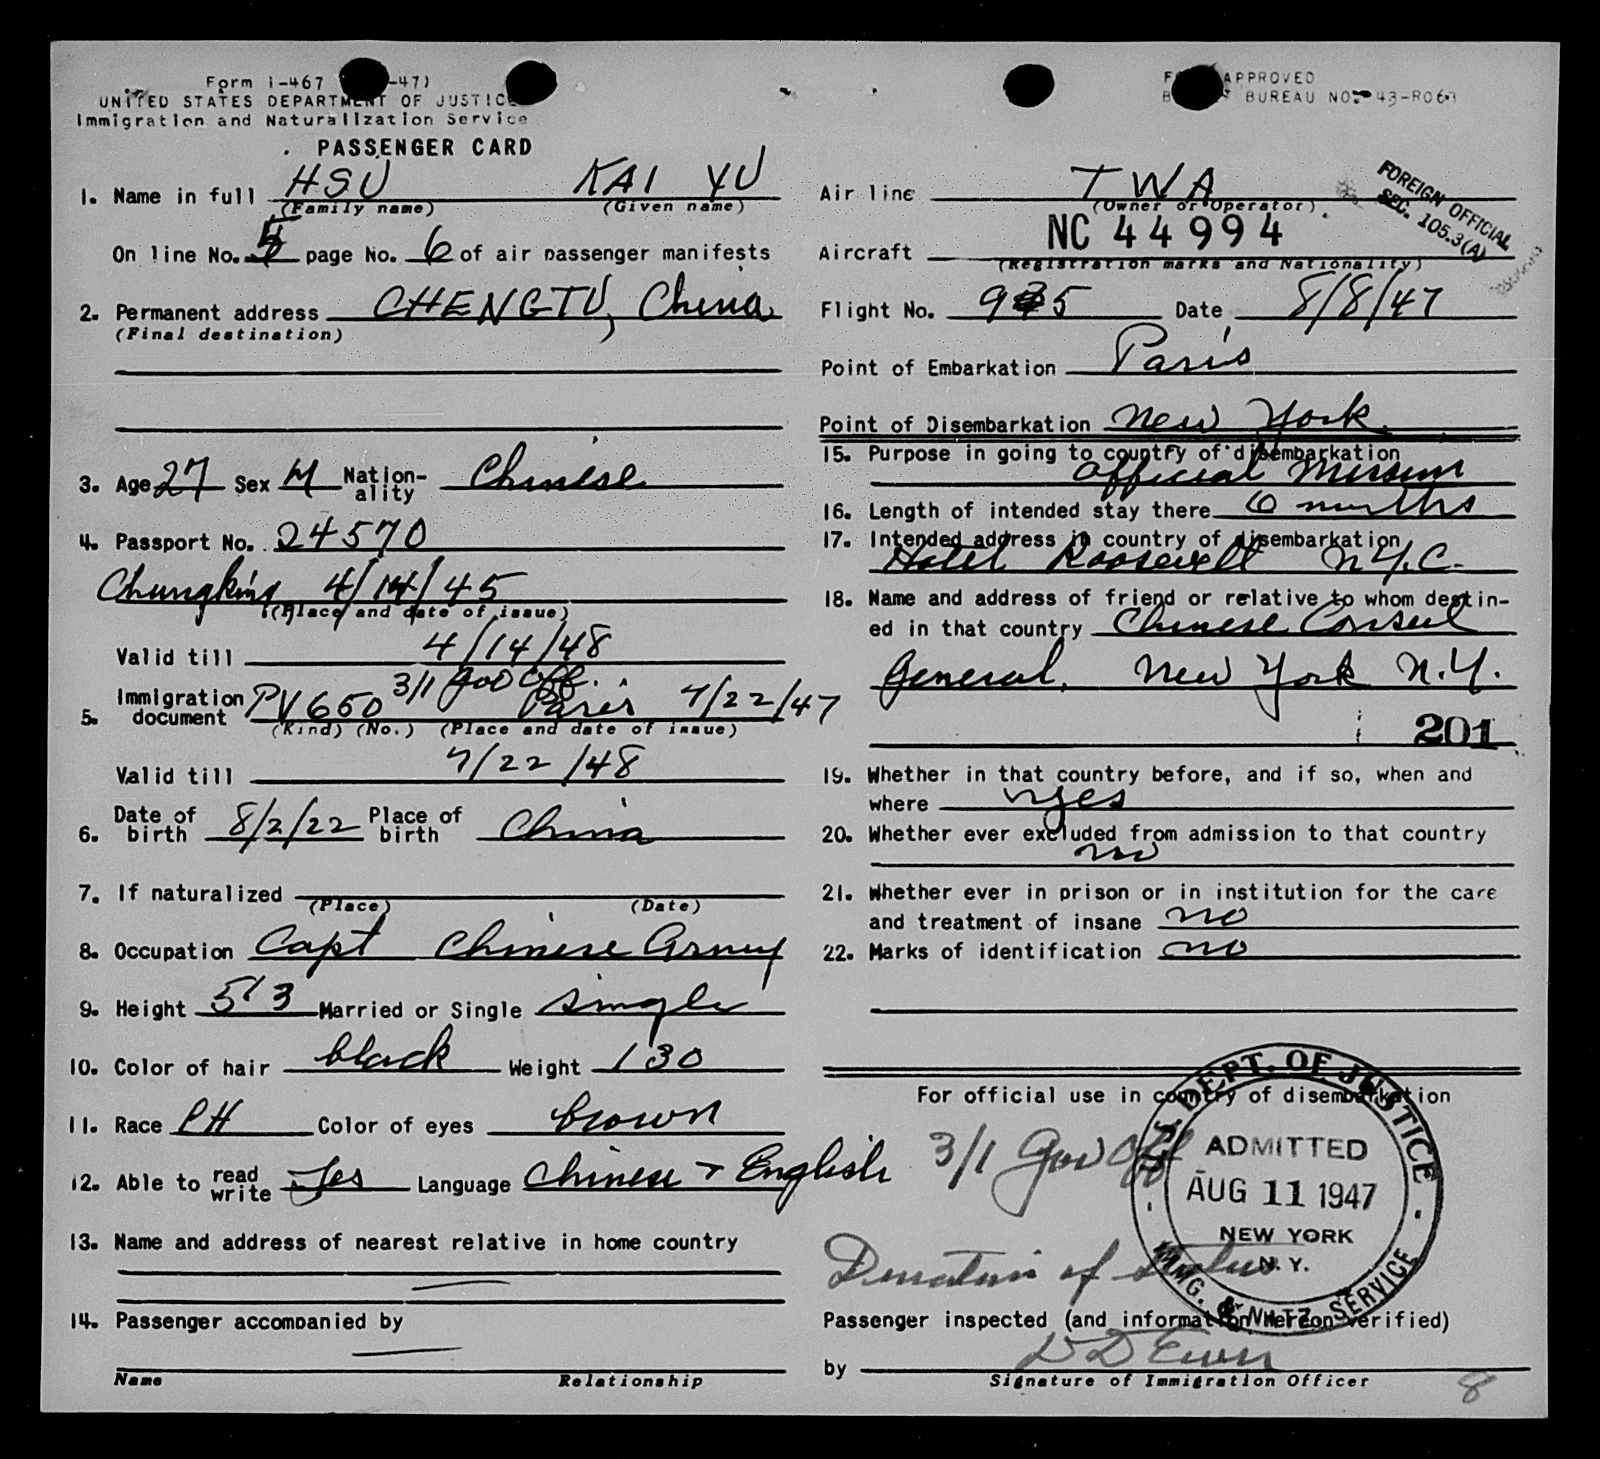 Form I-467 -47)
UNITED STATES DEPARTMENT OF JUSTICE
Immigration and Naturalization Service
PASSENGER CARD
1. Name in full HSU KAI YU
(Family name) (Given name)
On line No. 5 page No. 6 of air passenger manifests
2. Permanent address CHENGTU, China
(Final destination)
3. Age 27 Sex M Nation-ality Chinese
4. Passport No. 24570
Chungking 4/14/45
(Place and date of issue)
Valid till 4/14/48
3/1 Gov Off.
5. Immigration document PV 650 Paris 7/22/47
(Kind) (No.) (Place and date of issue)
Valid till 7/22/48
6. Date of birth 8/2/22 Place of birth China
7. If naturalized
(Place) (Date)
8. Occupation Capt Chinese Army
9. Height 5'3 Married or Single single
10. Color of hair black Weight 130
11. Race CH Color of eyes brown
12. Able to read write Yes Language Chinese + English
13. Name and address of nearest relative in home country
14. Passenger accompanied by
Name Relationship
APPROVED
BUREAU NO. 43-R06
Air line TWA
(Owner or Operator)
FOREIGN OFFICIAL
SEC. 105.3(A)
Aircraft NC 44994
(Registration marks and Nationality)
Flight No. 935 Date 8/8/47
Point of Embarkation Paris
Point of Disembarkation New York
15. Purpose in going to country of disembarkation
Official Mission
16. Length of intended stay there 6 months
17. Intended address in country of disembarkation
Hotel Roosevelt N.Y.C.
18. Name and address of friend or relative to whom destin-
ed in that country Chinese Consul
General, New York N.Y.
201
19. Whether in that country before, and if so, when and
where yes
20. Whether ever excluded from admission to that country
no
21. Whether ever in prison or in institution for the care
and treatment of insane no
22. Marks of identification no
For official use in country of disembarkation
3/1 Gov Off
Duration of Status
U.S. DEPT. OF JUSTICE
ADMITTED
AUG 11 1947
NEW YORK
N.Y.
IMMG. & NATZ. SERVICE
Passenger inspected (and information hereon verified)
by
Signature of Immigration Officer
8